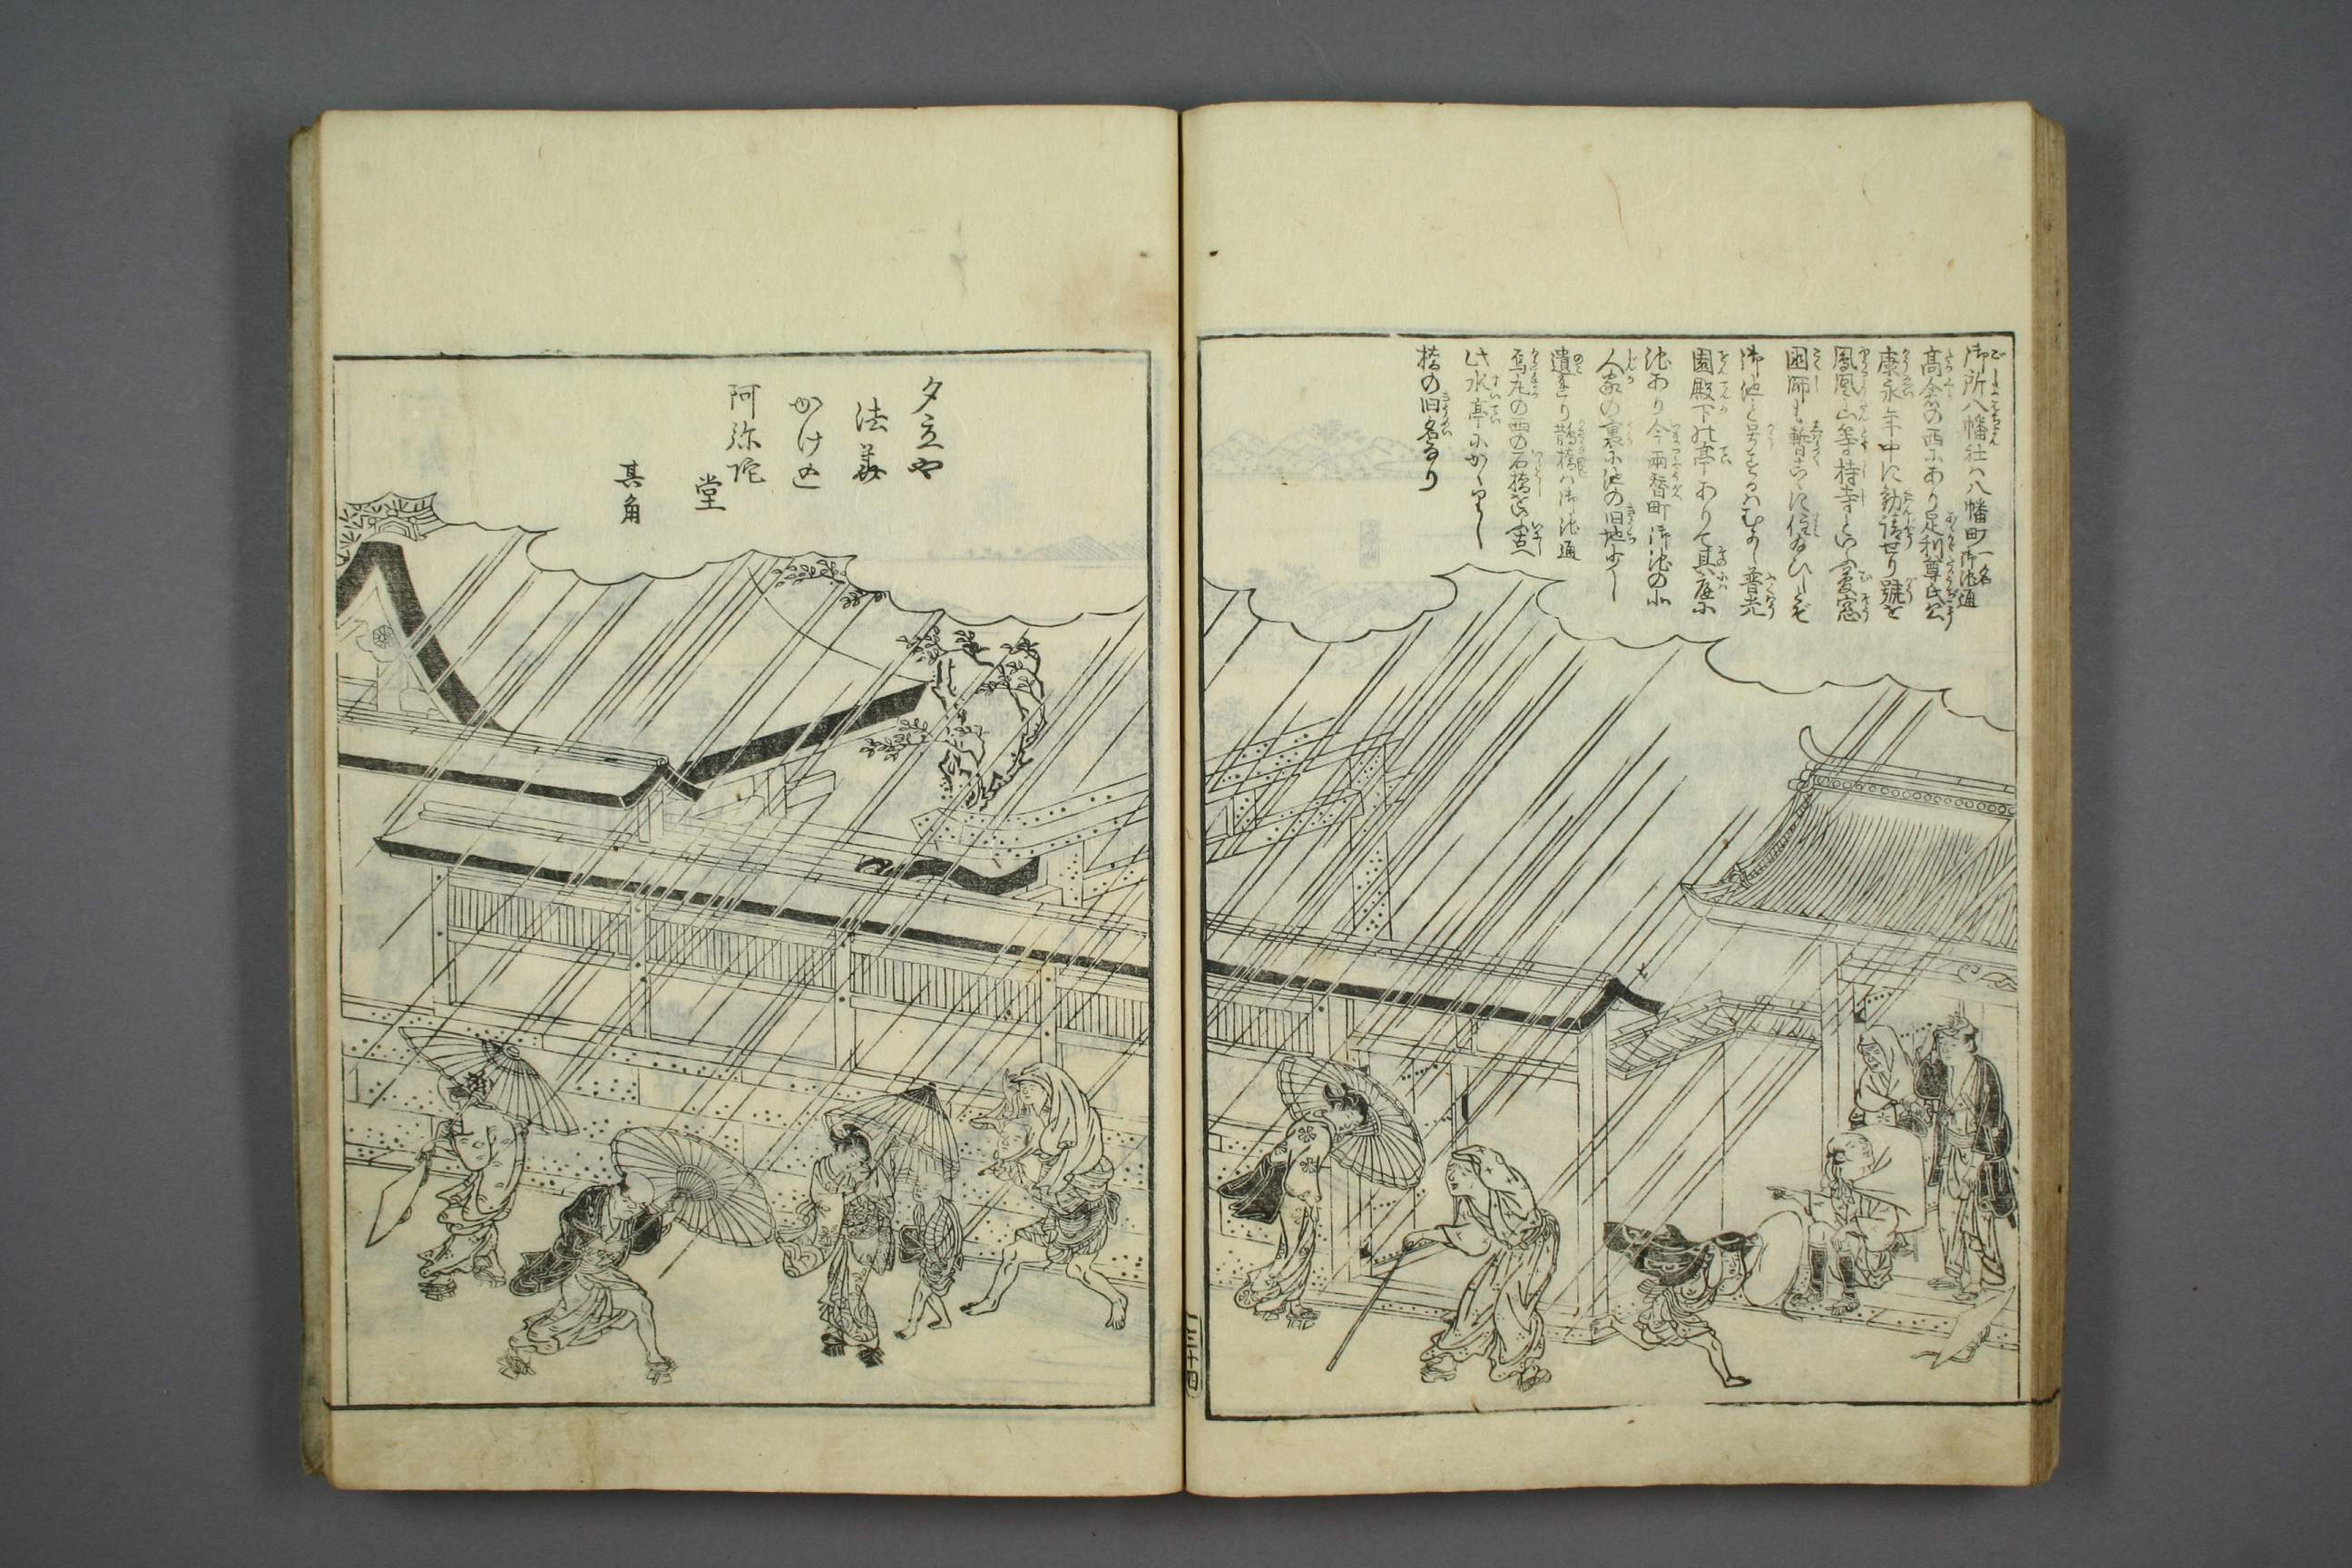 御所八幡社ハ八幡町一名御池通
高倉の西にあり足利尊氏公
康永年中に勧請せり號を
鳳凰山等持寺といふ夢窓
国師も暫こゝに住給ひしとぞ
御池と号するハむかし普光
園殿下の亭ありて其庭に
池あり今両替町御池の北
人家の裏に池の旧地少し
遺れり鵲橋ハ御池通
烏丸の西の石橋をいふ古へ
此水亭にかゝりし
橋の旧名なり
夕立や
法華
かけ込
阿弥陀
堂
其角
三十四